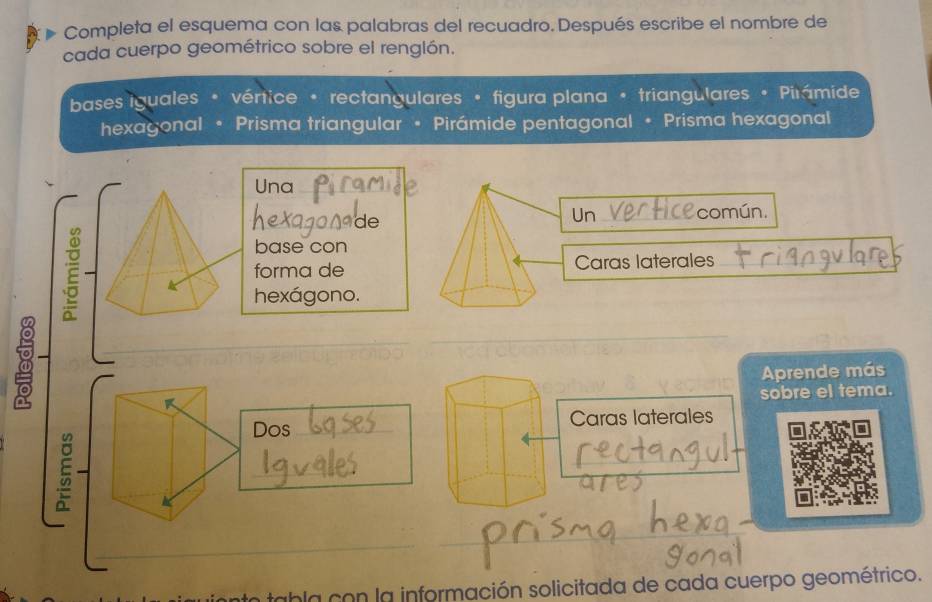 Completa el esquema con las palabras del recuadro. Después escribe el nombre de
cada cuerpo geométrico sobre el renglón.
bases iguales • vértice • rectangulares • figura plana • triangulares • Pirámide
hexagonal • Prisma triangular • Pirámide pentagonal • Prisma hexagonal
Poliedros
Pirámides
Una piramide
hexagonal de
base con
forma de
hexágono.
Un vertice común.
Caras laterales triangulares
Prismas
Dos bases
Iguales
Caras laterales
rectangul-
ares
prisma hexa-
gonal
Aprende más
sobre el tema.
tabla con la información solicitada de cada cuerpo geométrico.